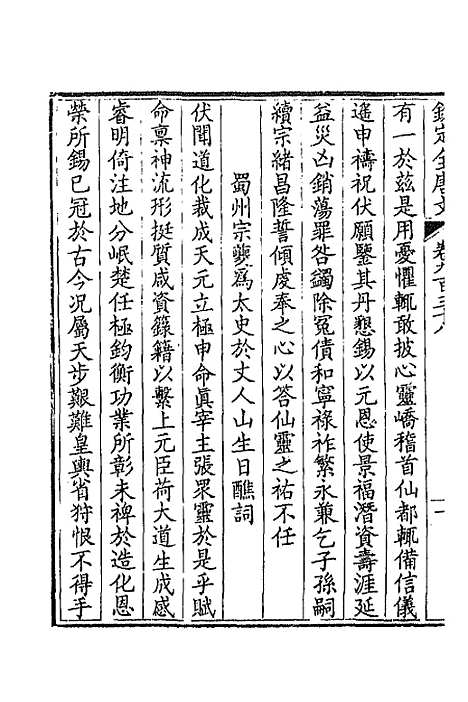 欽定全唐文 卷九百三十八
有一於茲是用憂懼輒敢披心靈嶠稽首仙都輒備信儀
遙申禱祝伏願鑒其丹懇錫以元恩使景福潛資壽涯延
益災凶銷蕩罪咎蠲除冤債和寧祿祚繁永兼乞子孫嗣
續宗緒昌隆誓傾虔奉之心以答仙靈之祐不任
蜀州宗夔為太史於丈人山生日醮詞
伏聞道化裁成天元立極申命眞宰主張眾靈於是乎賦
命稟神流形挺質咸資籙籍以繫上元臣荷大道生成感
睿明倚注地分岷楚任極鈞衡功業所彰未裨於造化恩
榮所錫已冠於古今況屬天步艱難皇輿省狩恨不得手